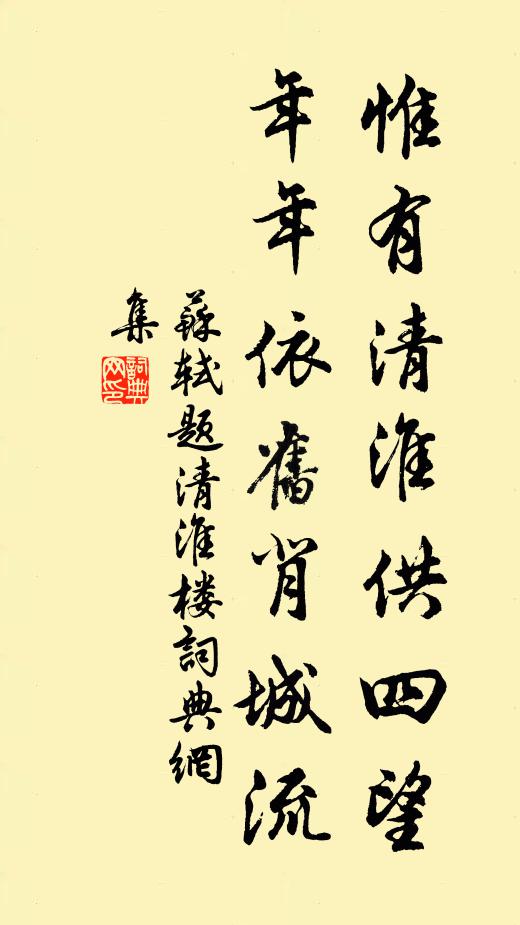 惟有清淮供四望
年年依舊背城流
蘇軾題清淮楼詞典網
集
詞典网印